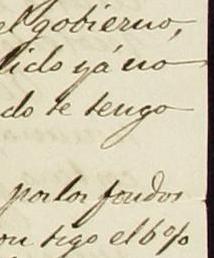 el gobierno,
lido yá no
do se tengo
por los fondos
on sigo el 6%